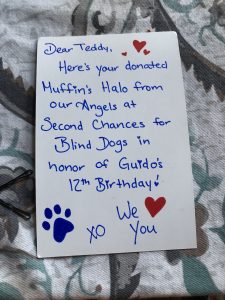 Dear Teddy,
Here's your donated
Muffin's Halo from
our Angels at
Second Chances for
Blind Dogs in
honor of Guido's
12th Birthday!
We ❤
xo You